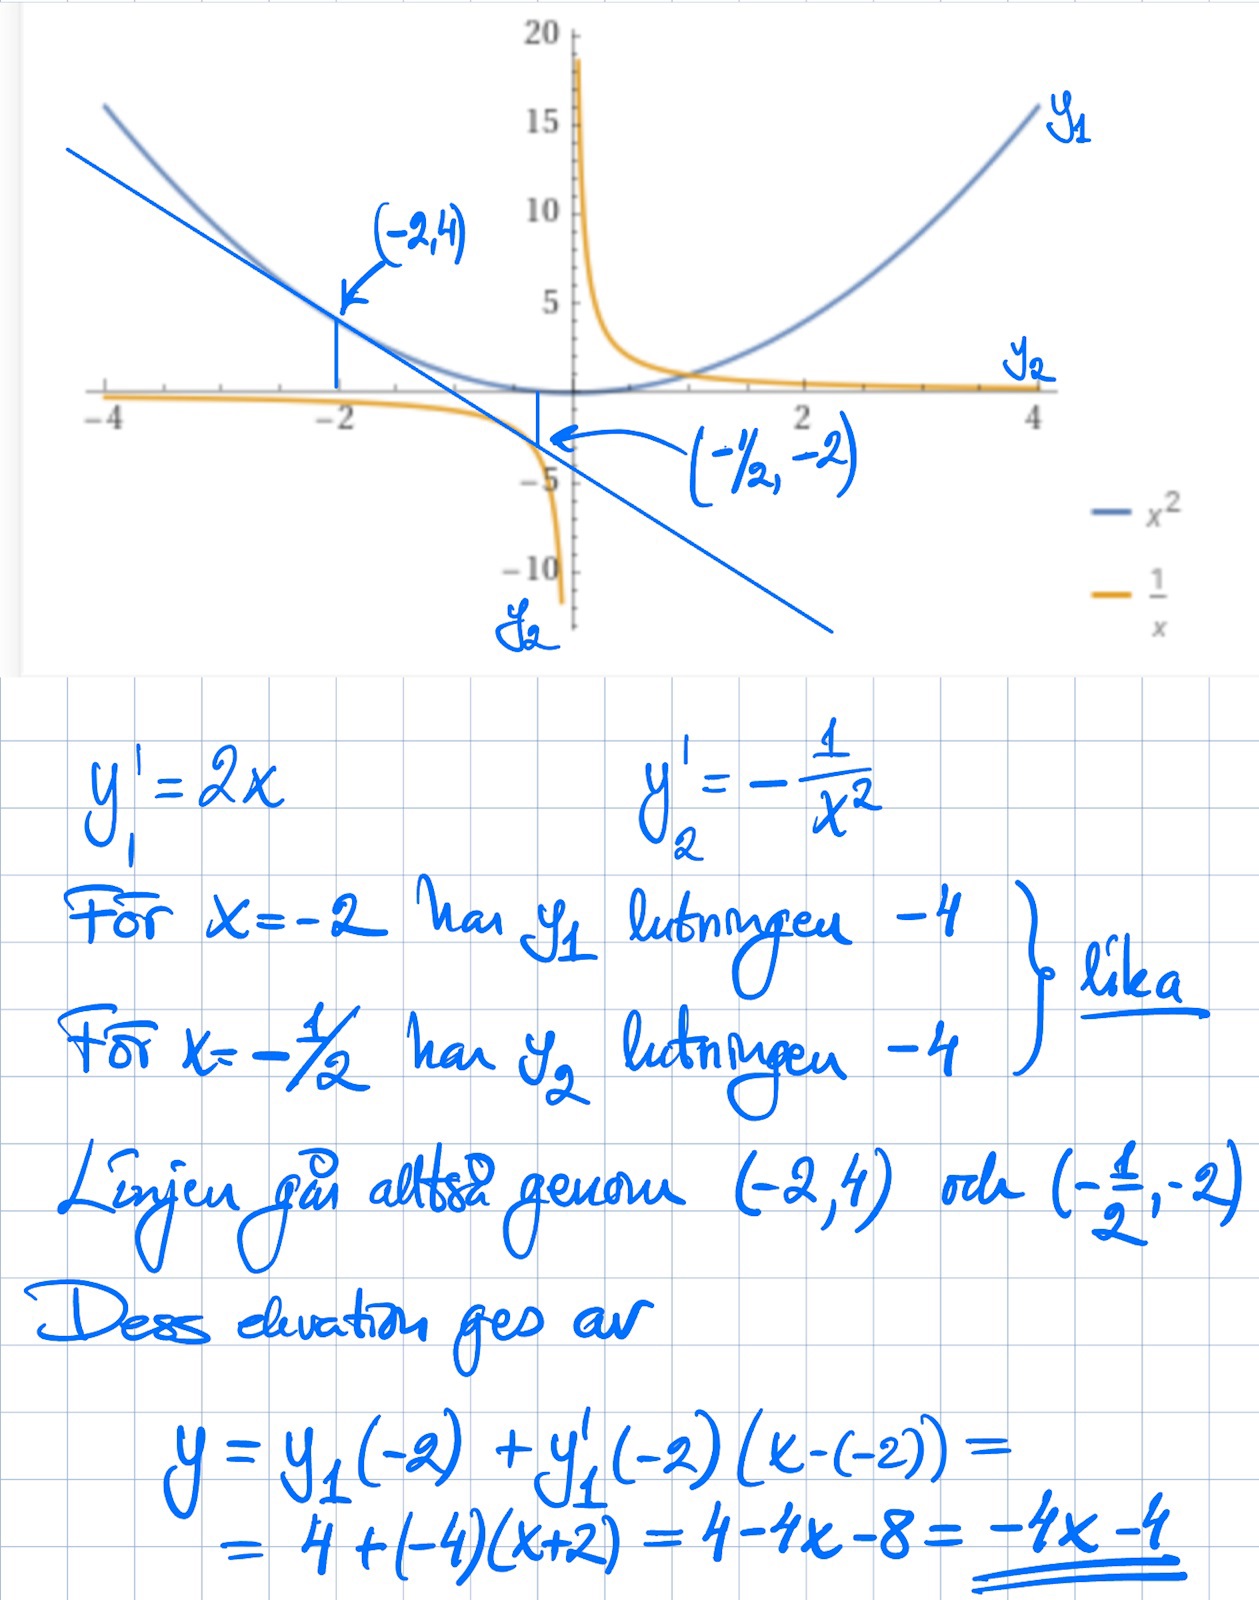 20
15
10
5
-5
-10
-4
-2
2
4
y₁
(-2,4)
y₂
(-1/2, -2)
y₂
x²
1/x
y₁' = 2x
y₂' = - 1/x²
För x=-2 har y₁ lutningen -4
För x=-1/2 har y₂ lutningen -4
} lika
Linjen går alltså genom (-2,4) och (-1/2,-2)
Dess ekvation ges av
y = y₁(-2) + y₁'(-2)(x-(-2)) =
= 4+(-4)(x+2) = 4-4x-8= -4x-4